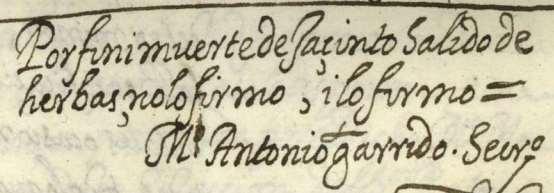 Por fin i muerte de Jaçinto Salido de
herbas, no lo firmo, i lo firmo =
M.º Antonio garrido. Secr.º